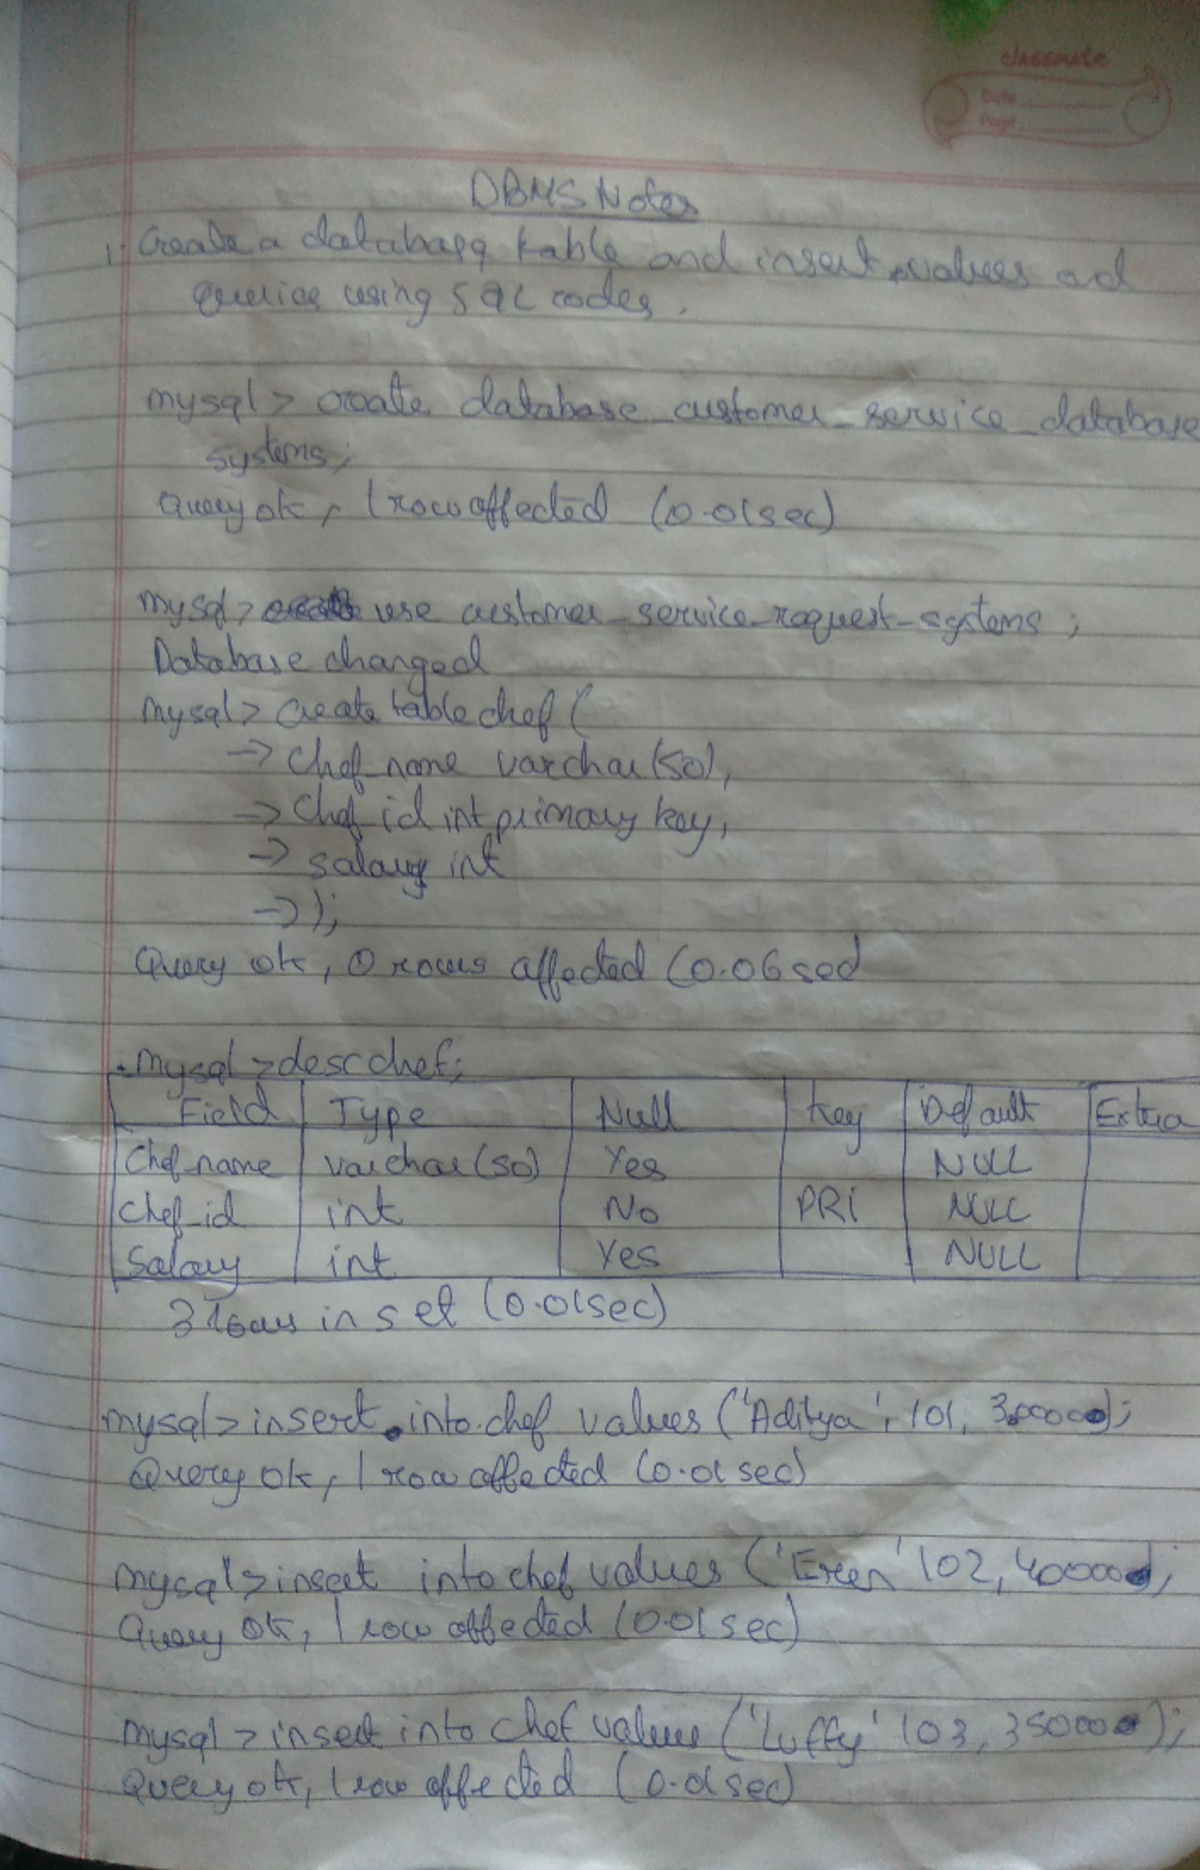 classmate
Date
Page
DBMS Notes
1. Create a database table and insert values and
queries using SQL codes.
mysql> create database_customer_service_database
systems;
Query ok, 1 row affected (0.01sec)
mysql> use customer_service_request_systems;
Database changed
mysql> create table chef (
-> Chef_name varchar(50),
-> Chef_id int primary key,
-> salary int
-> );
Query ok, 0 rows affected (0.06sec)
mysql >desc chef;
Field Type Null Key Default Extra
Chef_name varchar(50) Yes NULL
Chef_id int No PRI NULL
Salary int Yes NULL
3 rows in set (0.01sec)
mysql>insert into chef values ('Aditya', 101,
Query ok, 1 row affected (0.01sec)
mysql>insert into chef values ('Eren' 102,
Query ok, 1 row affected (0.01sec)
mysql >insert into chef values ('Luffy' 103,
Query ok, 1 row affected (0.01sec)